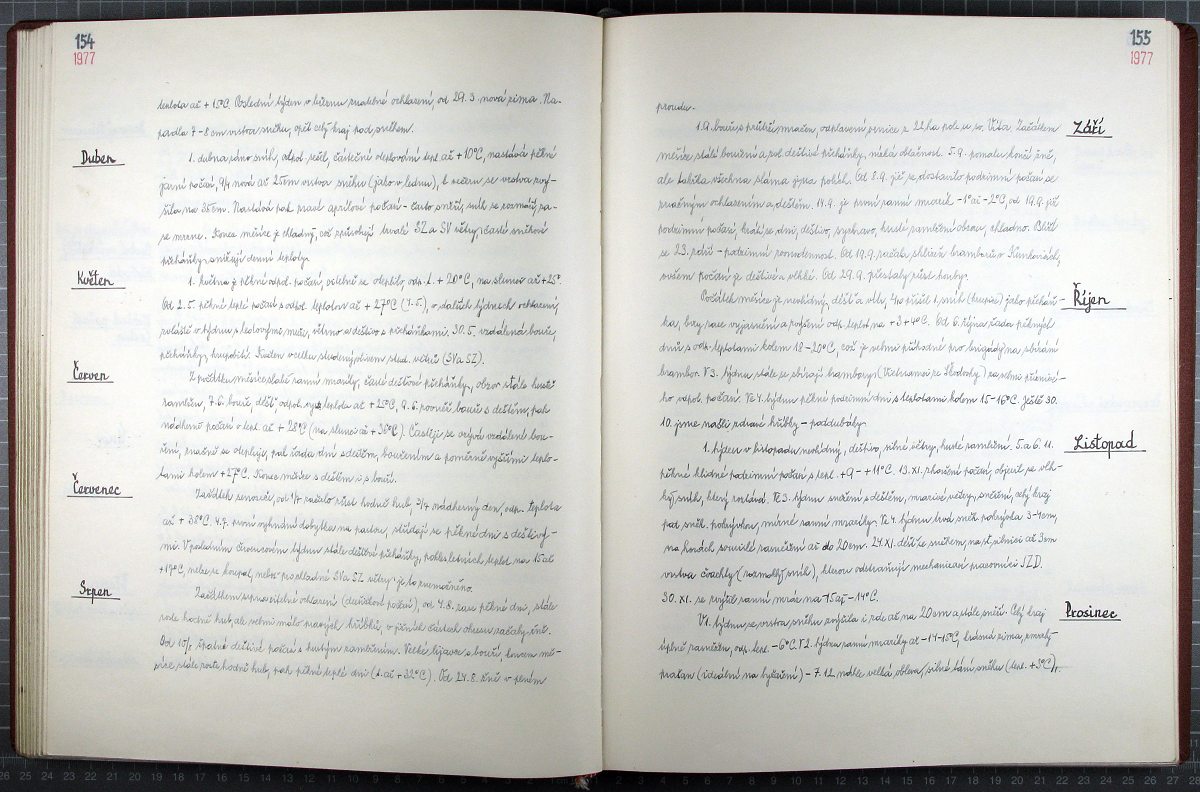 154
1977
teplota až + 15°C. Poslední týden v březnu znatelné ochlazení, od 29.3. nová zima. Na-
padla 7-8 cm vrstva sněhu, opět celý kraj pod sněhem.
Duben
1. dubna ráno sníh, odpol. sešel, částečné oteplování tepl. až +10°C, nastává pěkné
jarní počasí, 9/4 nová až 25cm vrstva sněhu (jako v lednu), k večeru se vrstva zvý-
šila na 35cm. Nastává pak pravé aprílové počasí - často sněží, sníh se rozmáčí, za-
se mrzne. Konec měsíce je chladný, což způsobují trvalé SZ a SV větry, časté sněhové
přeháňky snižují denní teploty.
Květen
1. května je pěkné odpol. počasí, citelně se oteplilo, odp. t. + 20°C, na slunci až +25°
Od 2.5. pěkné teplé počasí s odpol. teplotou až + 27°C (7.5.), v dalších týdnech ochlazení,
zvláště v týdnu s ledovými muži, větrno a deštivo s přeháňkami. 30.5. vzdálená bouře,
přeháňky, krupobití. Květen vcelku studený vlivem stud. větrů (SV a SZ).
Červen
Z počátku měsíce slabé ranní mrazíky, časté dešťové přeháňky, obzor stále hustě
zamlžen, 7.6. bouře, déšť odpol. teplota až + 25°C, 9.6. pozvolná bouře s deštěm, pak
nádherné počasí s tepl. až + 28°C (na slunci až +36°C). Častěji se ozývá vzdálené bou-
ření, značně se otepluje, pak řada dní s deštěm, bouřením a poměrně vyššími teplo-
tami kolem +27°C. Konec měsíce s deštěm i s bouří.
Červenec
Začátek senoseče, od 1/7 začalo růst hodně hub, 3/7 nádherný den, odp. teplota
až + 38°C. 4.7. první vyhnání dobytka na pastvu, střídají se pěkné dni s deštivý-
mi. V posledním červencovém týdnu stále deštivé přeháňky, pokles letních teplot na 15 až
+17°C, nelze se koupat, neboť pro chladné SV a SZ větry je to znemožněno.
Srpen
Začátkem srpna citelné ochlazení (dešťové počasí), od 4.8. zase pěkné dni, stále
roste hodně hub, ale velmi málo pravých hřibků, v jižních částech okresu začaly žně.
Od 15/8 špatné deštivé počasí s hustým zamlžením. Velké lijavce s bouří, koncem mě-
síce stále roste hodně hub, pak pěkné teplé dni (t. až + 32°C). Od 24.8. žně v plném
155
1977
proudu.
Září
1.9. bouře s průtrží mračen, odplavení ornice z 22 ha pole u sv. Víta. Začátkem
měsíce stálé bouření a pol. deštivé přeháňky, nízká oblačnost. 5.9. pomalu končí žně,
ale takřka všechna sláma zbyla pokosů. Od 8.9. již se dostavilo podzimní počasí se
značným ochlazením a deštěm. 14.9. je první ranní mrazík -1° až -2°C, od 19.9. již
podzimní počasí, krátí se dni, deštivo, sychravo, husté zamlžení obzoru, chladno. Blíží
se 23. září - podzimní rovnodennost. Od 19.9. začala sklizeň bramborů v Kunkovicích,
ovšem počasí je deštivé a vlhké. Od 29.9. přestaly růst houby.
Říjen
Počátek měsíce je nevlídný, déšť a vítr, 4.10. přišel 1. sníh (krupice) jako přeháň-
ka, brzy zase vyjasnění a zvýšení odp. teplot na +3+4°C. Od 6. října řada pěkných
dnů s odp. teplotami kolem 18-20°C, což je velmi příhodné pro brigády na sbírání
brambor. V 3. týdnu stále se sbírají brambory za velmi příznivé-
ho odpol. počasí. Ve 4. týdnu pěkné podzimní dni s teplotami kolem 15-16°C. Ještě 30.
10. jsme našli zdravé hřibky - padubáky.
Listopad
1. týden v listopadu neklidný, deštivo, silné větry, husté zamlžení. 5. a 6. 11.
pěkné klidné podzimní počasí s tepl. +9 - +11°C. 13. XI. zhoršení počasí, objevil se vlh-
ký sníh, který roztává. Ve 3. týdnu sněžení s deštěm, mrazivé větry, sněžení, celý kraj
pod sněh. pokrývkou, mírné ranní mrazíky. Ve 4. týdnu trvá sněh. pokrývka 3-4cm,
na horách souvislé zasněžení až do 20cm. 24. XI. déšť se sněhem, na st. silnici až 3cm
vrstva čvachty (rozmoklý sníh), kterou odstraňují mechanizací pracovníci JZD.
30. XI. se zvýšil ranní mráz na -15 až -17°C.
Prosinec
V 1. týdnu se vrstva sněhu zvýšila i zde až na 20cm a stále sněží. Celý kraj
úplně zasněžen, odp. tepl. -6°C. V 2. týdnu ranní mrazíky až -14-15°C, krásná zima, zmrzlý
prašan (ideální na lyžaření) - 7.12. náhle velká obleva, silné tání sněhu (tepl. +3°C),